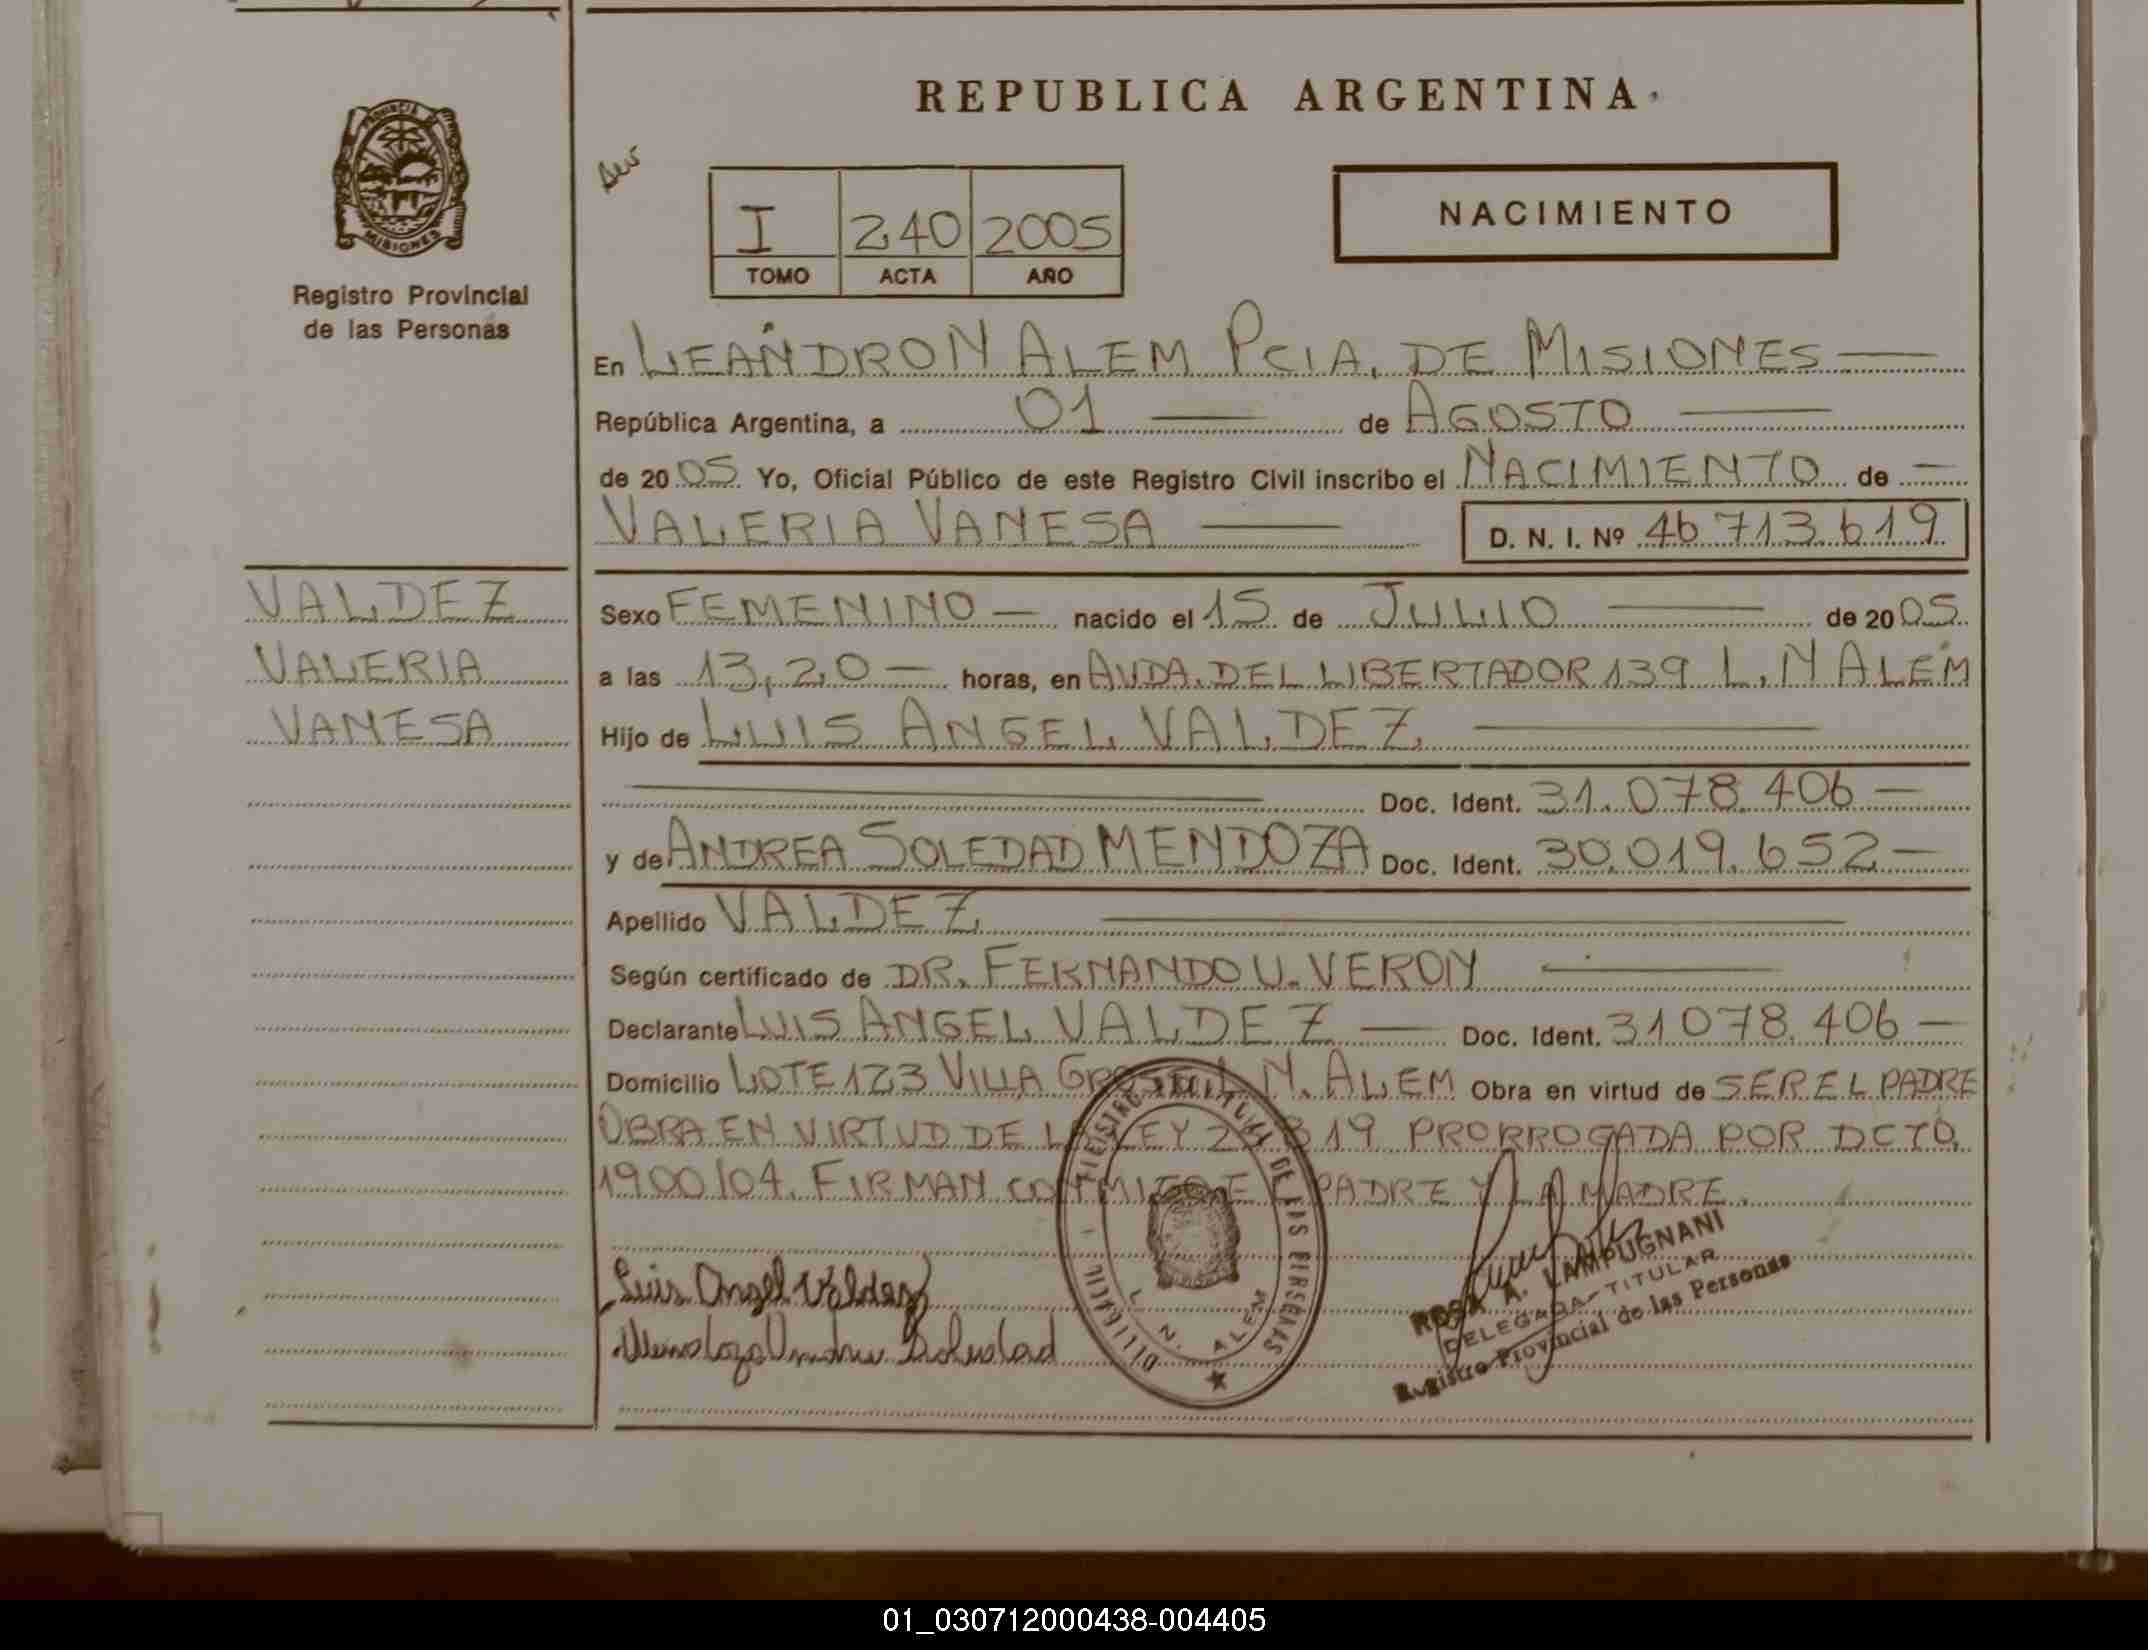 REPUBLICA ARGENTINA
PROVINCIA DE
MISIONES
Registro Provincial
de las Personas
I 240 2005
TOMO ACTA AÑO
NACIMIENTO
En LEANDRO N ALEM PCIA. DE MISIONES
República Argentina, a 01 de AGOSTO
de 2005 Yo, Oficial Público de este Registro Civil inscribo el NACIMIENTO de
VALERIA VANESA D. N. I. Nº 46 713.619
VALDEZ
VALERIA
VANESA
Sexo FEMENINO nacido el 15 de JULIO de 2005
a las 13,20 horas, en AVDA. DEL LIBERTADOR 139 L. N ALEM
Hijo de LUIS ANGEL VALDEZ
Doc. Ident. 31.078.406
y de ANDREA SOLEDAD MENDOZA Doc. Ident. 30.019.652
Apellido VALDEZ
Según certificado de DR. FERNANDO U. VERON
Declarante LUIS ANGEL VALDEZ Doc. Ident. 31078.406
Domicilio LOTE 123 VILLA L N. ALEM Obra en virtud de SER EL PADRE
OBRA EN VIRTUD DE LA LEY 819 PRORROGADA POR DCTO.
1900/04. FIRMAN CONMIGO EL PADRE Y LA MADRE.
Luis Angel Valdez
Mendoza Andrea Soledad
DE LAS PERSONAS
L. N. ALEM
ROSA A. LAMPUGNANI
DELEGADA-TITULAR
Registro Provincial de las Personas
01_030712000438-004405